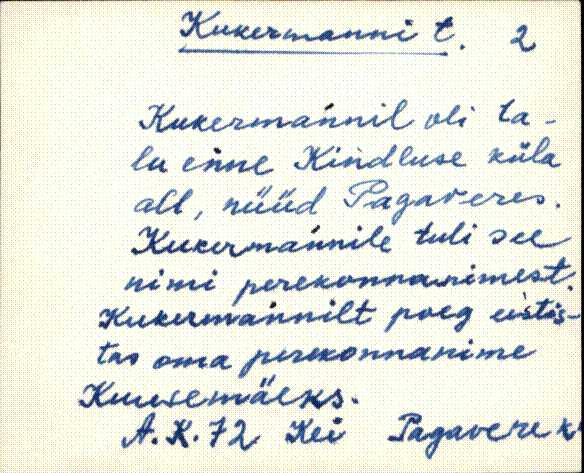 Kukermanni t. 2
Kukermańnil oli ta-
lu enne Kińdluse küla
all, nüüd Pagaveres.
Kukermańnile tuli see
nimi perekonnanimest.
Kukermańnilt poeg eistis-
tas oma perekonnanime
Kuusemäeks.
A.K.72 Kei Pagavere k.